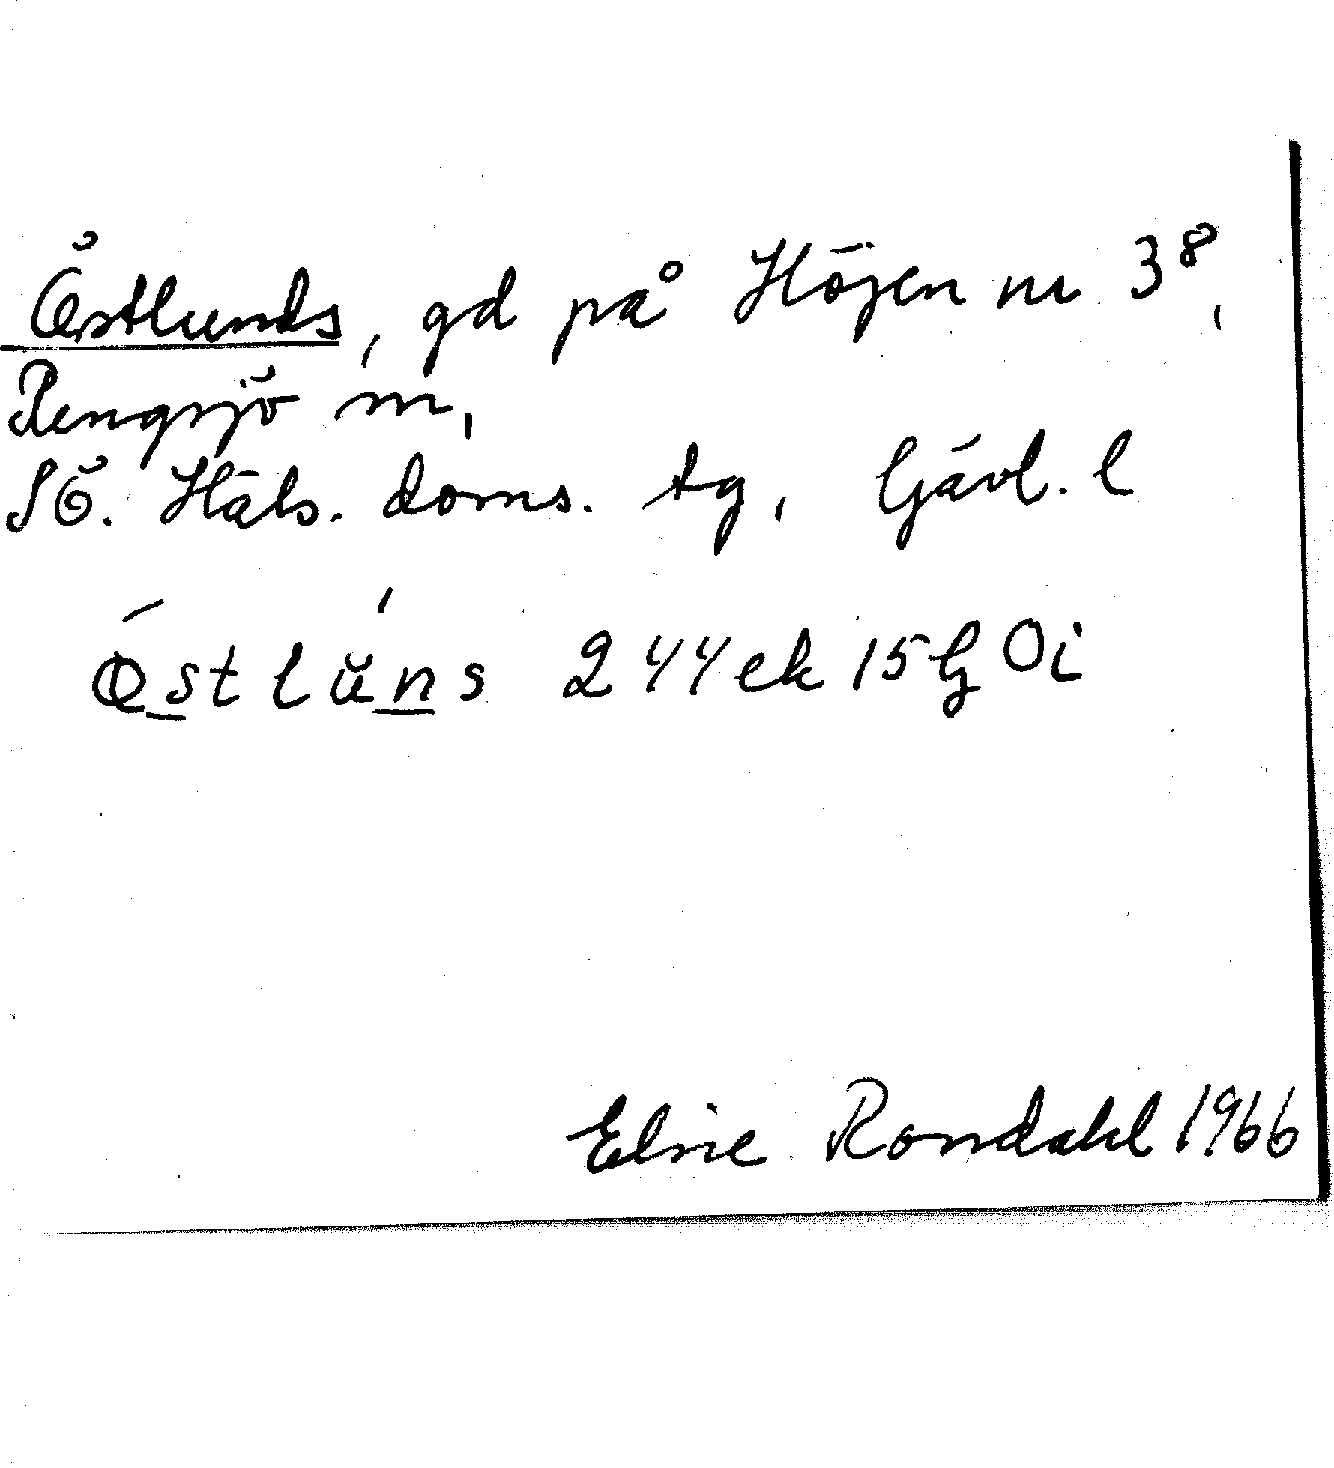 Östlunds, gd på Höjen nr 3⁸,
Rengsjö sn,
SÖ. Häls. doms. tg, Gävl. l
Östlŭns 244 ek 15 G Oi
Elsie Rondahl 1966